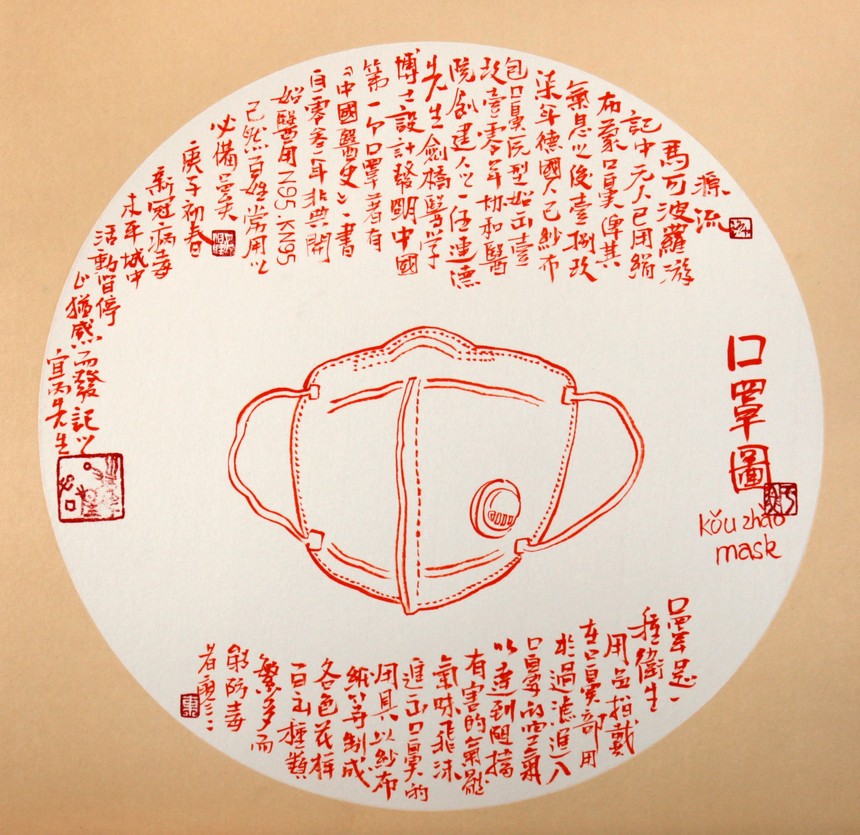 口罩圖
kǒu zhào
mask
源流
馬可波羅游
記中元人已用絹
布蒙口鼻俾其
氣息以後壹捌玖
柒年德國人已紗布
包口鼻原型始出壹
玖壹零年協和醫
院創建人之一伍連德
先生劍橋醫学
博士設計發明中國
第一个口罩著有
《中國醫史》一書
自零零年非典開
始醫用N95.KN95
已然百姓常用以
必備矣
庚子初春
新冠病毒
年城中
活動暫停
心猶感而發記之
宜丙先生
口罩是一
種衛生
用品指戴
在口鼻部用
於過濾進入
口鼻的空氣
以達到阻擋
有害的氣體
氣味飛沫
進出口鼻的
用具以紗布
紙等制成
各色花样
百出種類
繁多而
能防毒
者